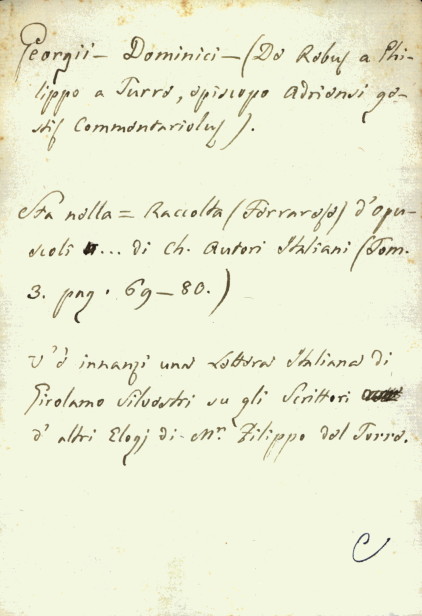 Georgii - Dominici - (De Rebus a Phi-
lippo a Turre, episcopo Adriensi ge-
stis Commentariolus).
Sta nella = Raccolta (Ferrarese) d'Opu-
scoli ... di Ch. Autori Italiani (Tom.
3. pag. 69-80.)
V'è innanzi una Lettera Italiana di
Girolamo Silvestri su gli Scrittori
d'altri Elogj di Mr. Filippo del Torre.
C